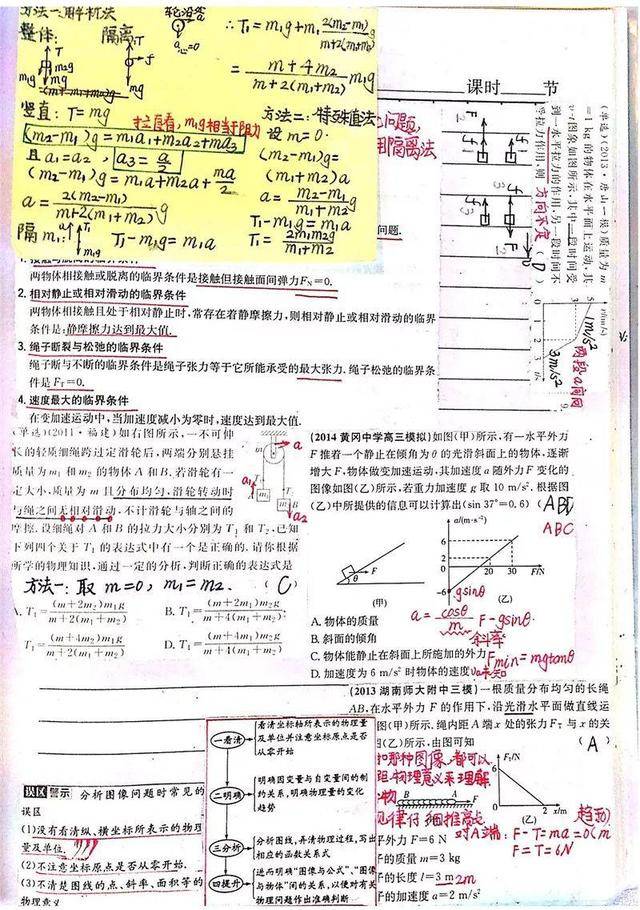 方法一:解析法
整体: 隔离
轮沿套
a=0
竖直: T=mg
拉启看,m₁g相当于阻力
(m₂-m₁)g=m₁a₁+m₂a₂+ma₃
且 a₁=a₂, a₃=a/2
(m₂-m₁)g=m₁a+m₂a+ma/2
a=2(m₂-m₁)/(m+2(m₁+m₂)) g
隔m₁: T₁-m₁g=m₁a
∴T₁=m₁g+m₁ 2(m₂-m₁)g/(m+2(m₁+m₂))
=(m+4m₂)/(m+2(m₁+m₂)) m₁g
方法二:特殊值法
设 m=0.
(m₂-m₁)g=
(m₁+m₂)a
a=(m₂-m₁)/(m₁+m₂) g
T₁-m₁g=m₁a
T₁=2m₁m₂g/(m₁+m₂)
问题,
用隔离法
问题.
课时 节
(单选)(2013·唐山一模)质量为m
=1 kg的物体在水平面上运动,其
v-t图象如图所示,其中一段时间受
到一水平拉力的作用,另一段时间不
受拉力作用,则 方向不定 (D)
1m/s²
3m/s²
两段a同向
两物体相接触或脱离的临界条件是接触但接触面间弹力Fₙ=0.
2.相对静止或相对滑动的临界条件
两物体相接触且处于相对静止时,常存在着静摩擦力,则相对静止或相对滑动的临界
条件是:静摩擦力达到最大值.
3.绳子断裂与松弛的临界条件
绳子断与不断的临界条件是绳子张力等于它所能承受的最大张力.绳子松弛的临界条
件是Fₜ=0.
4.速度最大的临界条件
在变加速运动中,当加速度减小为零时,速度达到最大值.
(单选)(2011·福建)如右图所示,一不可伸
长的轻质细绳跨过定滑轮后,两端分别悬挂
质量为m₁和m₂的物体A和B.若滑轮有一
定大小,质量为m且分布均匀,滑轮转动时
与绳之间无相对滑动,不计滑轮与轴之间的
摩擦.设细绳对A和B的拉力大小分别为T₁和T₂,已知
下列四个关于T₁的表达式中有一个是正确的.请你根据
所学的物理知识,通过一定的分析,判断正确的表达式是
方法一:取 m=0, m₁=m₂. (C)
A. T₁=(m+2m₂)m₁g/(m+2(m₁+m₂)) B. T₁=(m+2m₁)m₂g/(m+4(m₁+m₂))
T₁=(m+4m₂)m₁g/(m+2(m₁+m₂)) D. T₁=(m+4m₁)m₂g/(m+4(m₁+m₂))
(2014 黄冈中学高三模拟)如图(甲)所示,有一水平外力
F推着一个静止在倾角为θ的光滑斜面上的物体,逐渐
增大F,物体做变加速运动,其加速度a随外力F变化的
图像如图(乙)所示,若重力加速度g取10 m/s².根据图
(乙)中所提供的信息可以计算出(sin 37°=0.6) (ABD)
ABC
a/(m·s⁻²)
6
3
0 20 30 F/N
-6
gsinθ
(甲) (乙)
a=cosθ/m F-gsinθ.
斜率
A. 物体的质量
B. 斜面的倾角
C. 物体能静止在斜面上所施加的外力 Fmin=mgtanθ
D. 加速度为6 m/s²时物体的速度
(2013 湖南师大附中三模)一根质量分布均匀的长绳
AB,在水平外力F的作用下,沿光滑水平面做直线运
图(甲)所示.绳内距A端x处的张力Fₜ与x的关
图(乙)所示,由图可知 (A)
那种图像,都可以
物理意义来理解
Fₜ/N
0 2 x/m
(乙)
对A端: F-T=ma=0
F=T=6N
外力F=6 N
的质量m=3 kg
的长度l=3 m 2m
的加速度a=2 m/s²
误区警示 分析图像问题时常见的
误区
(1)没有看清纵、横坐标所表示的物理
量及单位.
(2)不注意坐标原点是否从零开始.
(3)不清楚图线的点、斜率、面积等的
物理意义
一看清
看清坐标轴所表示的物理量
及单位并注意坐标原点是否
从零开始
二明确
明确因变量与自变量间的制
约关系,明确物理量的变化
趋势
三分析
分析图线,弄清物理过程,写出
相应的函数关系式
四提升
进而明确"图像与公式"、"图像
与物体"间的关系,以便对有关
物理问题作出准确判断